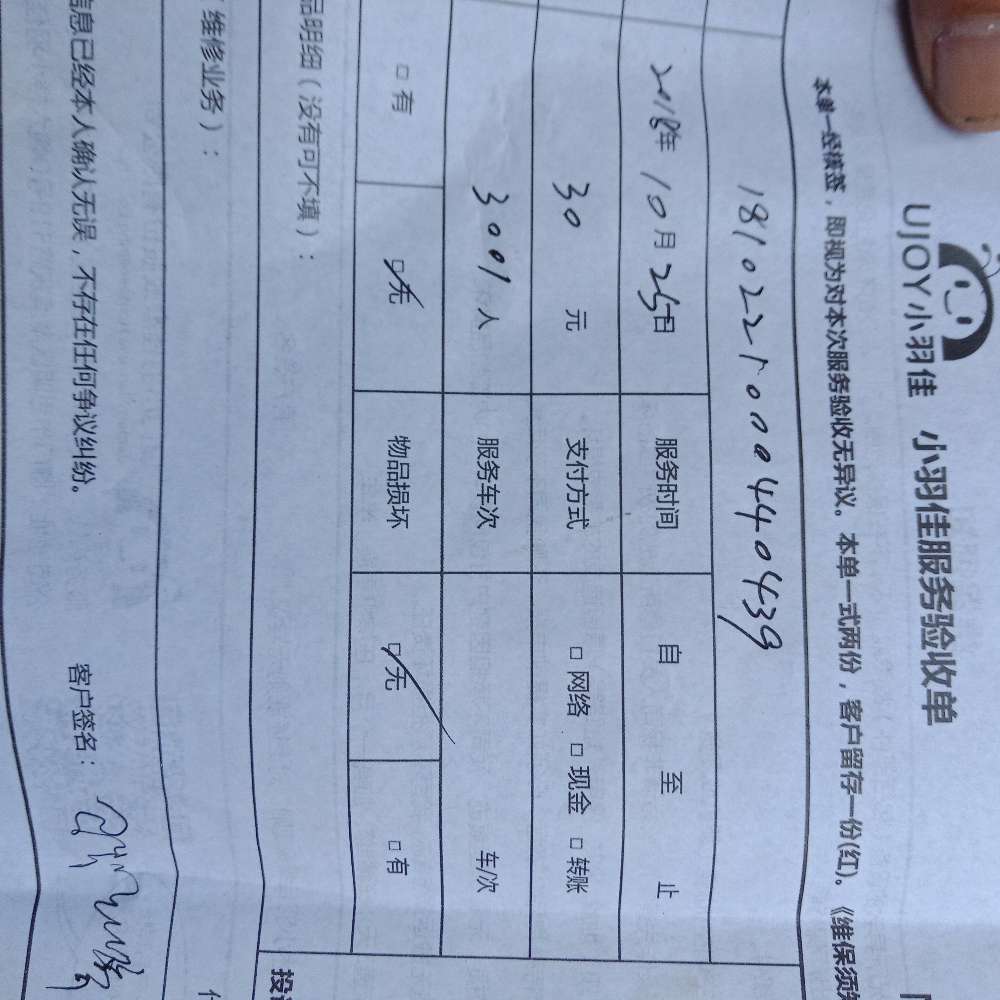 UJOY小羽佳 小羽佳服务验收单
本单一经核签，即视为对本次服务验收无异议。本单一式两份，客户留存一份(红)。《维保须知
1810221000440439
2018年10月25日 服务时间 自 至 止
30 元 支付方式 □ 网络 □ 现金 □ 转账
3001 人 服务车次 车/次
□ 有 □无 物品损坏 □无 □ 有
品明细（没有可不填）：
投
维修业务）：
信息已经本人确认无误，不存在任何争议纠纷。 客户签名：